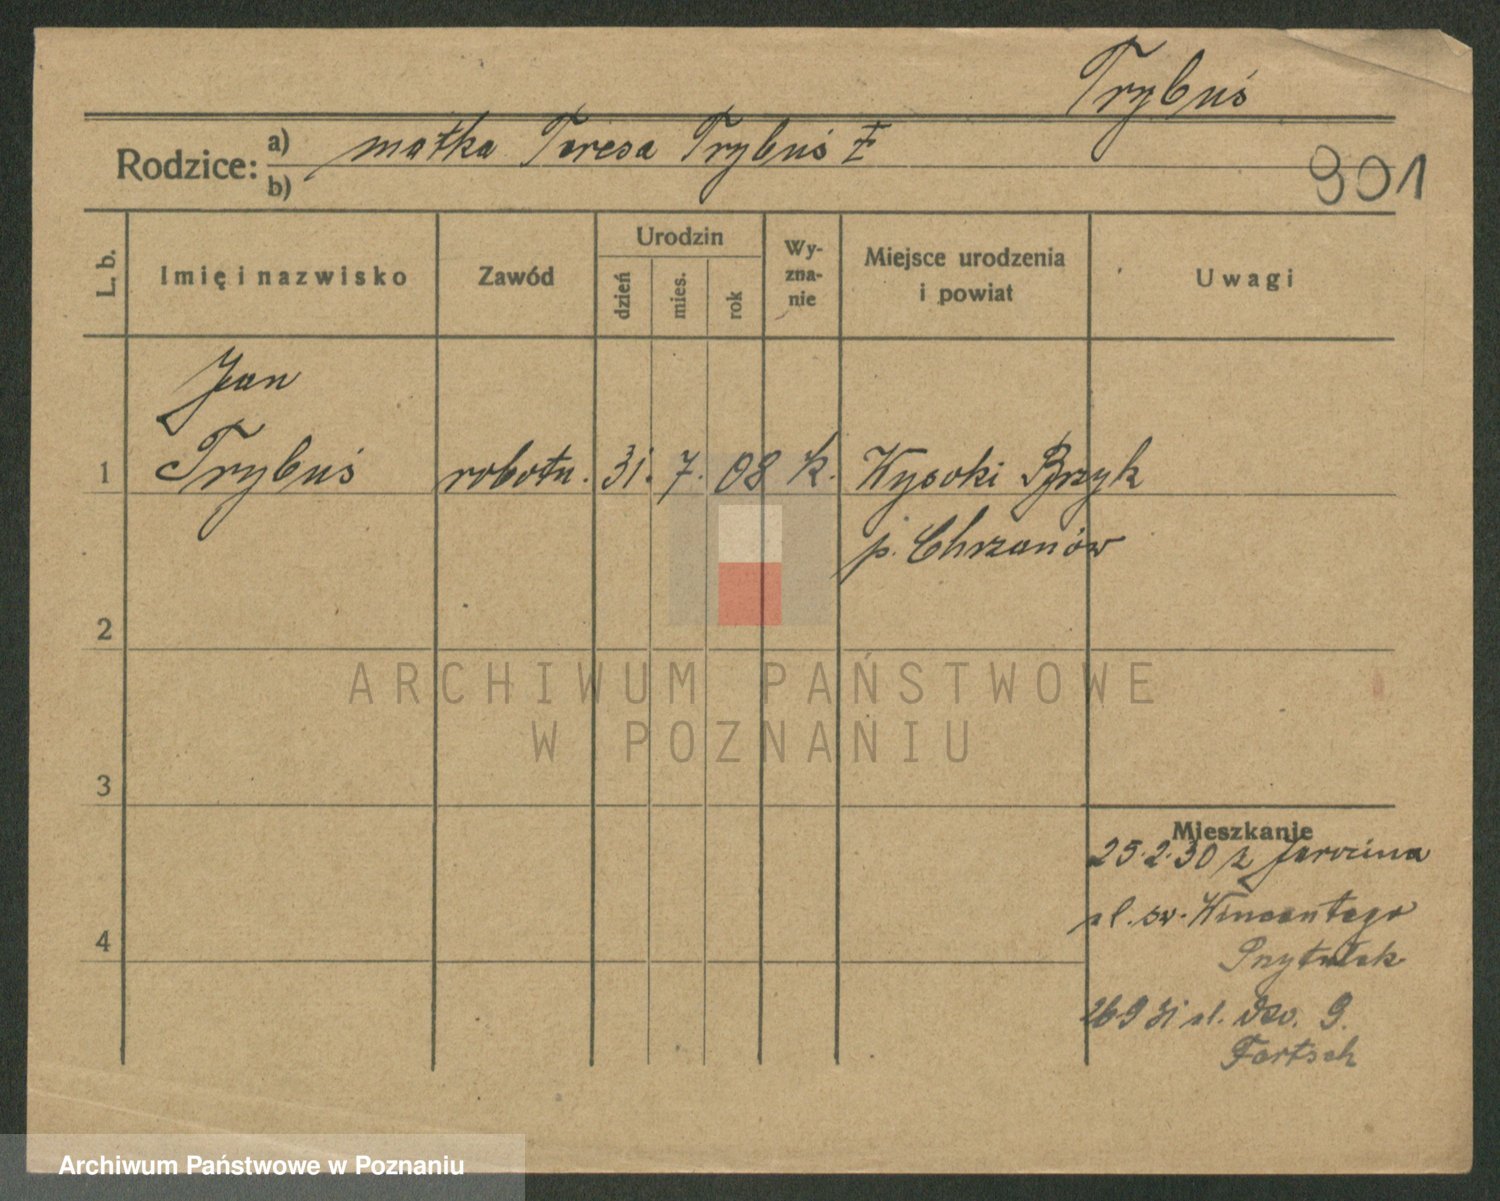 Trybuś
Rodzice: a) matka Teresa Trybuś
b)
901
L. b.
Imię i nazwisko
Zawód
Urodzin
dzień
mies.
rok
Wy-
zna-
nie
Miejsce urodzenia
i powiat
Uwagi
Jan
1 Trybuś robotn. 31. 7. 08 k. Wysoki Brzyk
p. Chrzanów
2
3
4
Mieszkanie
25.2.30 z Jarocina
ul. św. Wincentego
Przytułek
26 9 31 ul. 9.
Fortsch
ARCHIWUM PAŃSTWOWE
W POZNANIU
Archiwum Państwowe w Poznaniu